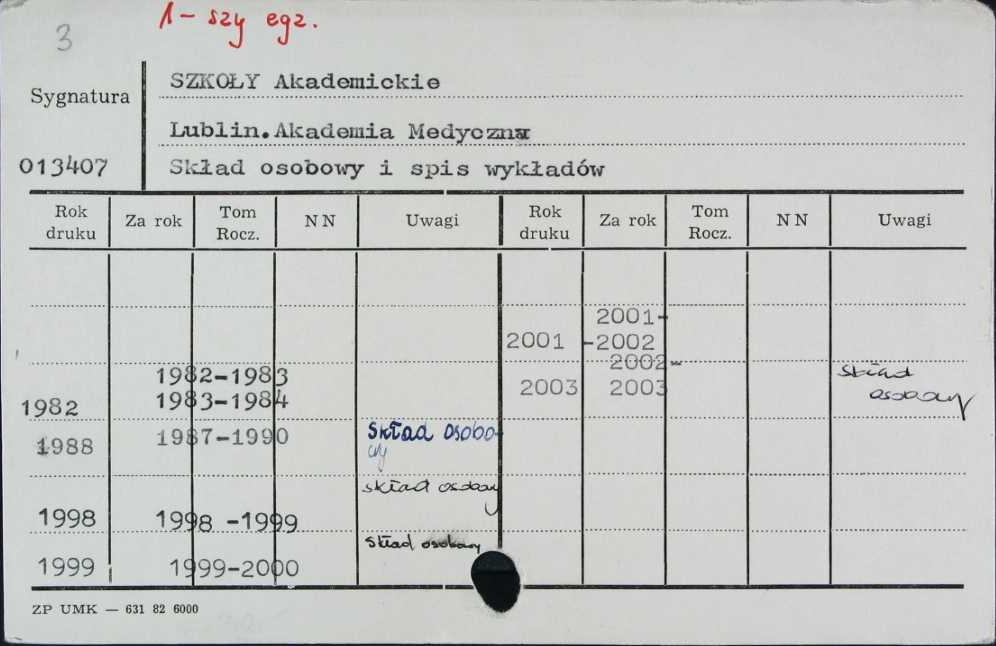 3
1-szy egz.
Sygnatura
013407
SZKOŁY Akademickie
Lublin.Akademia Medyczna
Skład osobowy i spis wykładów
Rok druku Za rok Tom Rocz. NN Uwagi Rok druku Za rok Tom Rocz. NN Uwagi
2001-
2001 -2002
2002-
2003 2003 skład osobowy
1982-1983
1982 1983-1984
1988 1987-1990 Skład osobo-
wy
skład osobowy
1998 1998 -1999
Skład osobowy
1999 1999-2000
ZP UMK — 631 82 6000